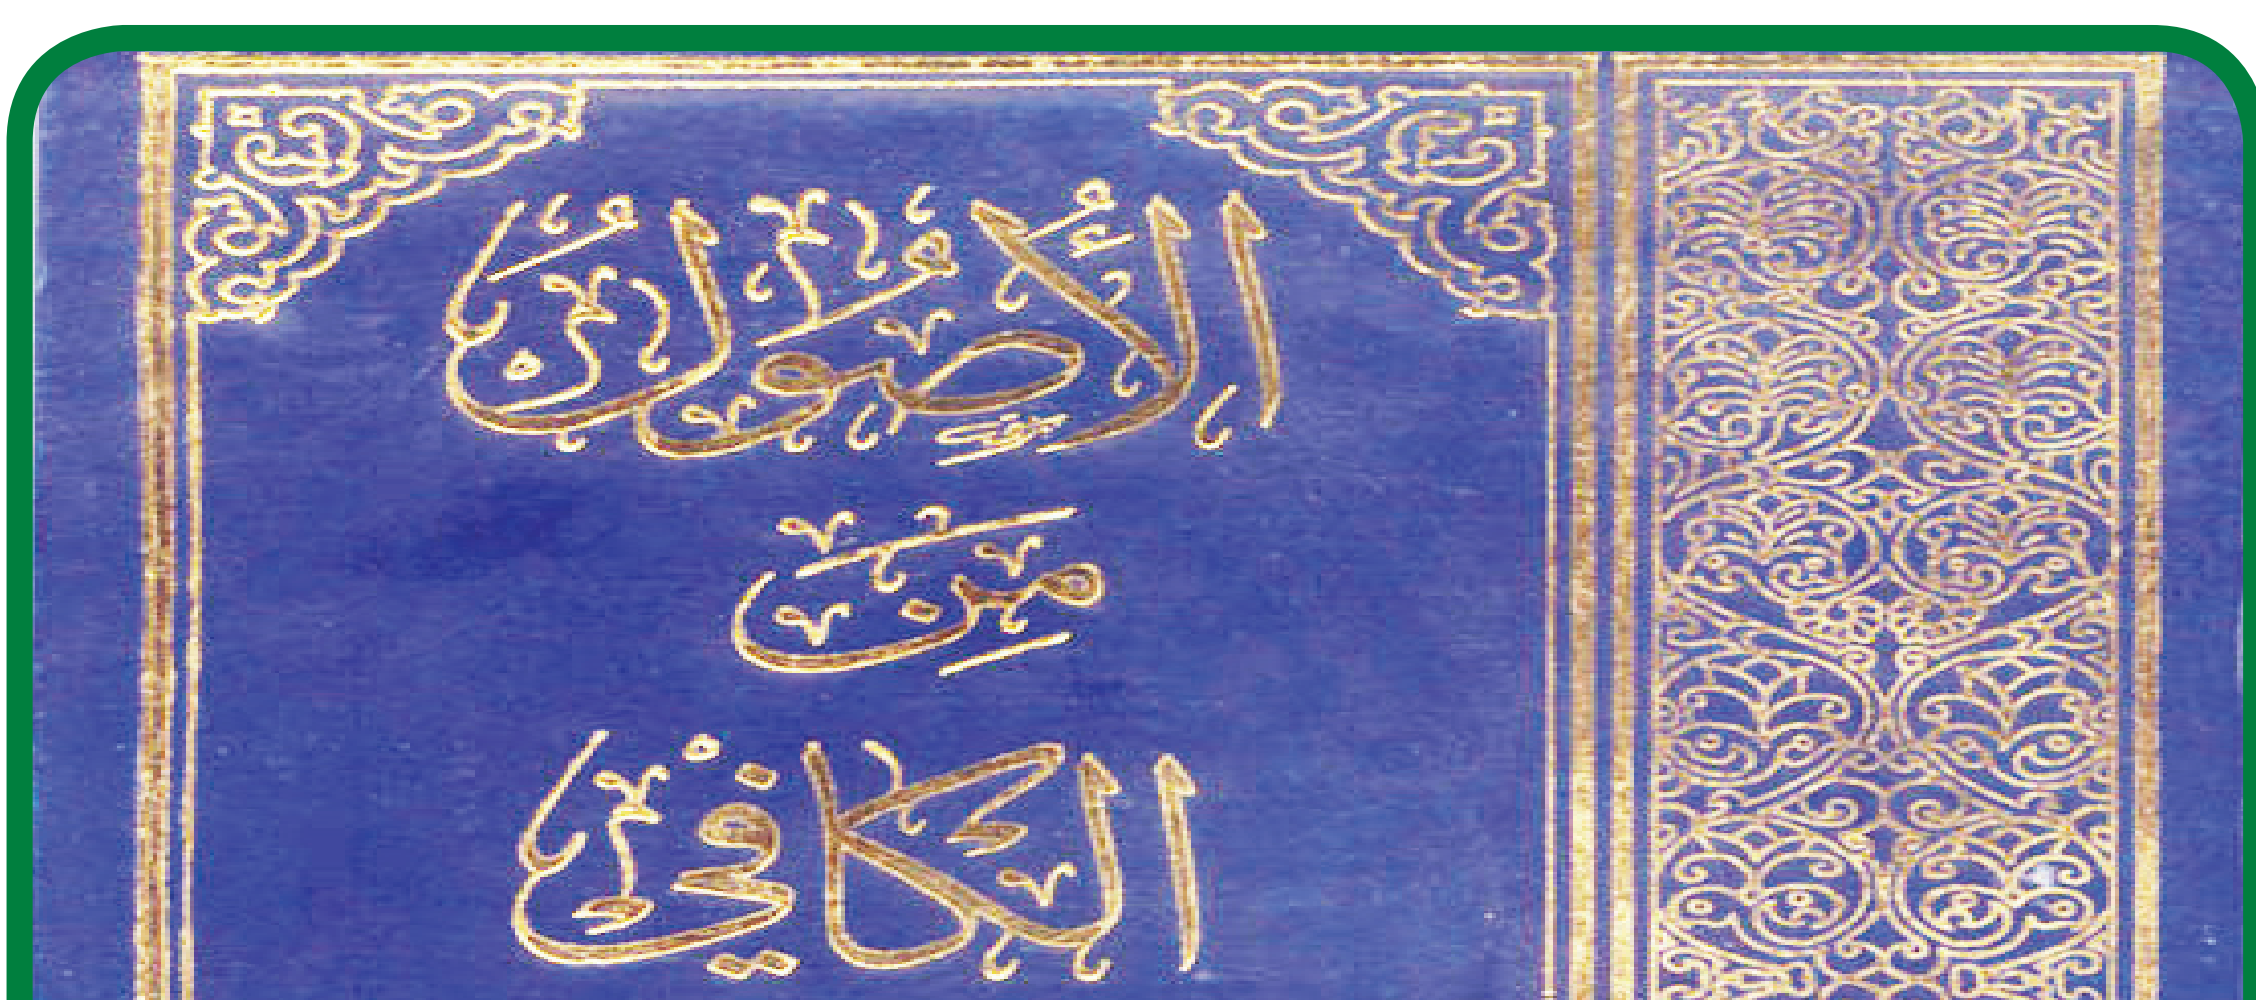 الأصول
من
الكافي